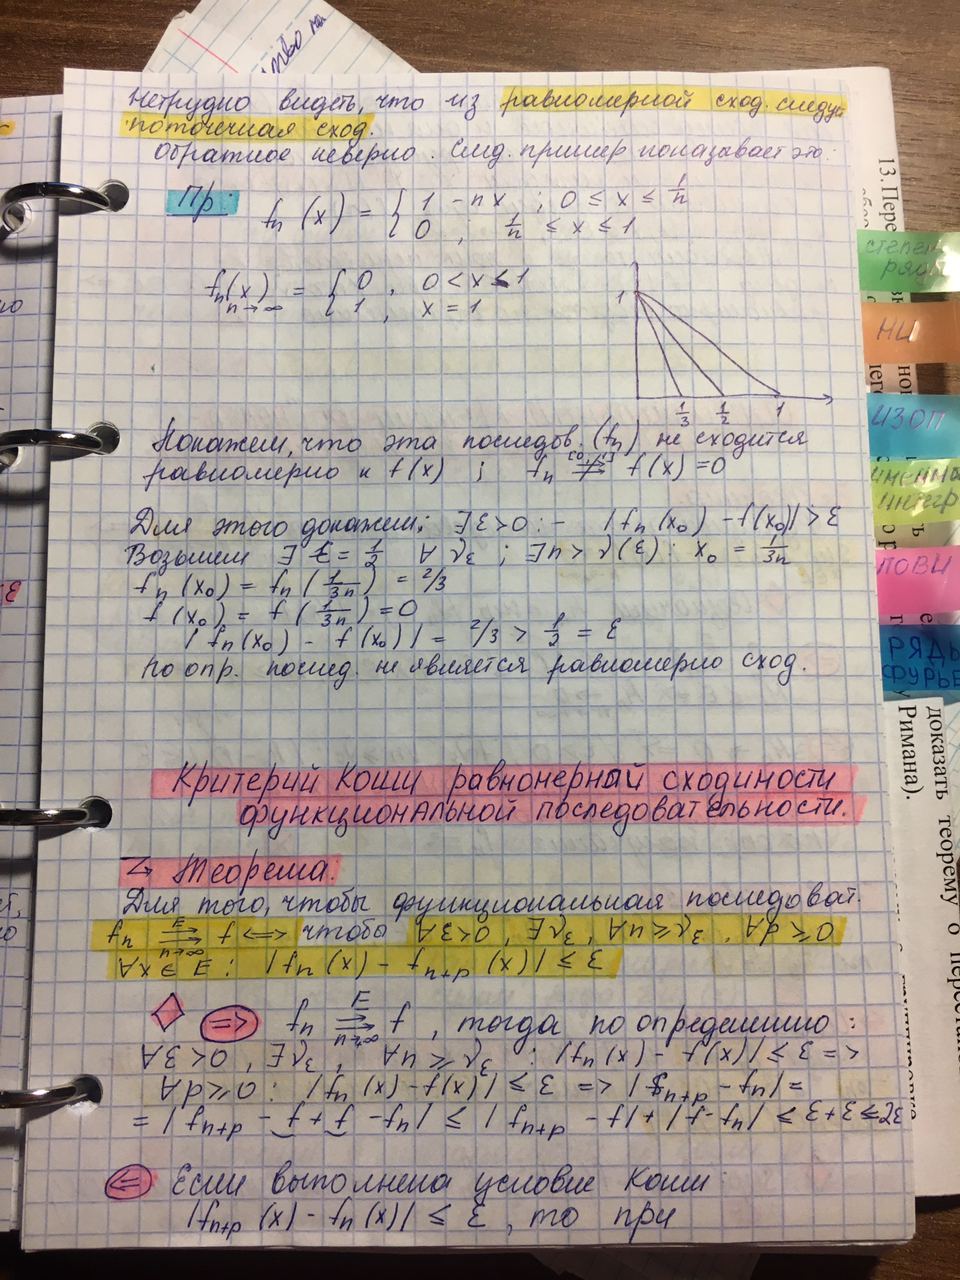 Нетрудно видеть, что из равномерной сход. следует
поточечная сход.
Обратное неверно. След. пример показывает это:
Пр. fₙ(x) = { 1 - nx ; 0 ≤ x ≤ 1/n
0 , 1/n ≤ x ≤ 1
fₙ(x) n→∞ = { 0 , 0 < x ≤ 1
1 , x = 1
1
1/3 1/2 1
Покажем, что эта последов. (fₙ) не сходится
равномерно к f(x) ; fₙ ⇉̸ f(x) = 0
Для этого докажем: ∃ε>0 : - |fₙ(x₀) - f(x₀)| > ε
Возьмем ∃ ε = 1/2 ∀ γε ; ∃n > γ(ε) : x₀ = 1/3n
fₙ(x₀) = fₙ(1/3n) = 2/3
f(x₀) = f(1/3n) = 0
|fₙ(x₀) - f(x₀)| = 2/3 > 1/2 = ε
По опр. послед. не является равномерно сход.
Критерий Коши равномерный сходимости
функциональной последовательности.
↳ Теорема.
Для того, чтобы функциональная последоват.
fₙ ⇉ᴱ n→∞ f ⟺ чтобы ∀ε>0, ∃γε, ∀n≥γε, ∀p≥0
∀x∈E : |fₙ(x) - fₙ₊ₚ(x)| ≤ ε
⇒ fₙ ⇉ᴱ n→∞ f , тогда по определению :
∀ε>0, ∃γε, ∀n≥γε : |fₙ(x) - f(x)| ≤ ε =>
∀p≥0 : |fₙ(x) - f(x)| ≤ ε => |fₙ₊ₚ - fₙ| =
= |fₙ₊ₚ - f + f - fₙ| ≤ |fₙ₊ₚ - f| + |f - fₙ| ≤ ε + ε ≤ 2ε
⇐ Если выполнена условие Коши:
|fₙ₊ₚ(x) - fₙ(x)| ≤ ε , то при
степен
ряды
НИ
ИЗОП
интегр
ПОВИ
РЯДЫ
ФУРЬЕ
13. Пере
доказать теорему о
Римана).